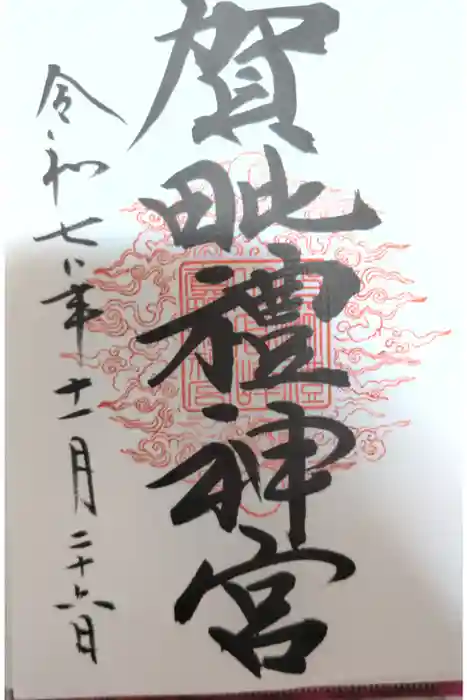 賀毗禮神宮
令和七年十一月二十六日